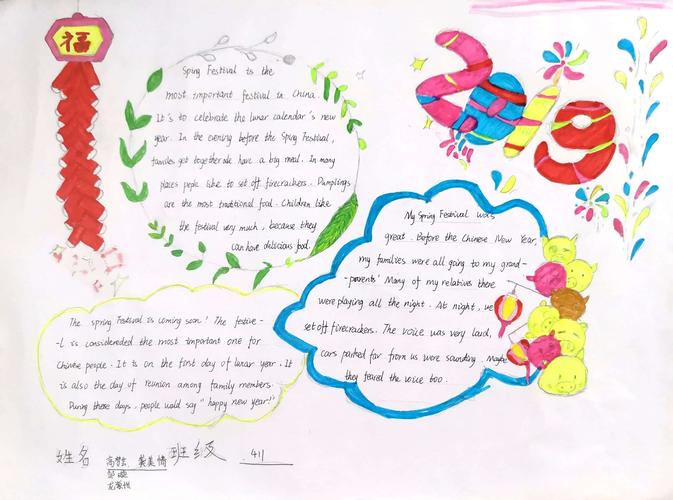 福
Sping Festival is the
most important festival in China.
It's to celebrate the lunar calendar's new
year. In the evening before the Sping Festival,
families get together and have a big meal. In many
places peple like to set off firecrackers. Dumplings
are the most traditional food. Children like
the festival very much, because they
can have delicious food.
2019
My Spring Festival was
great. Before the Chinese New Year,
my families were all going to my grand-
-parents' Many of my relatives there
were playing all the night. At night, we
set off firecrackers. The voice was very loud,
cars parked far from us were sounding. Maybe
they feared the voice too.
The spring Festival is coming soon! The festive-
-l is considereded the most important one for
Chinese people. It is on the first day of lunar year. It
is also the day of reunion among family members.
During these days, people would say "happy new year!"
姓名 班级 411